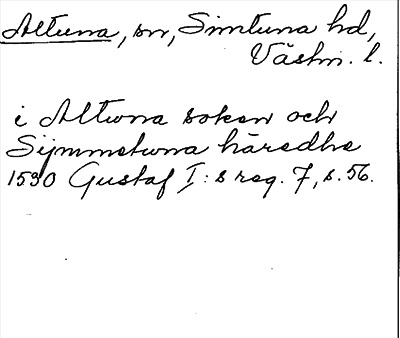 Altuna, sn, Simtuna hd,
Västm. l.
i Altwna soken och
Symmetwna häredhe
1530 Gustaf I:s reg. 7, s. 56.